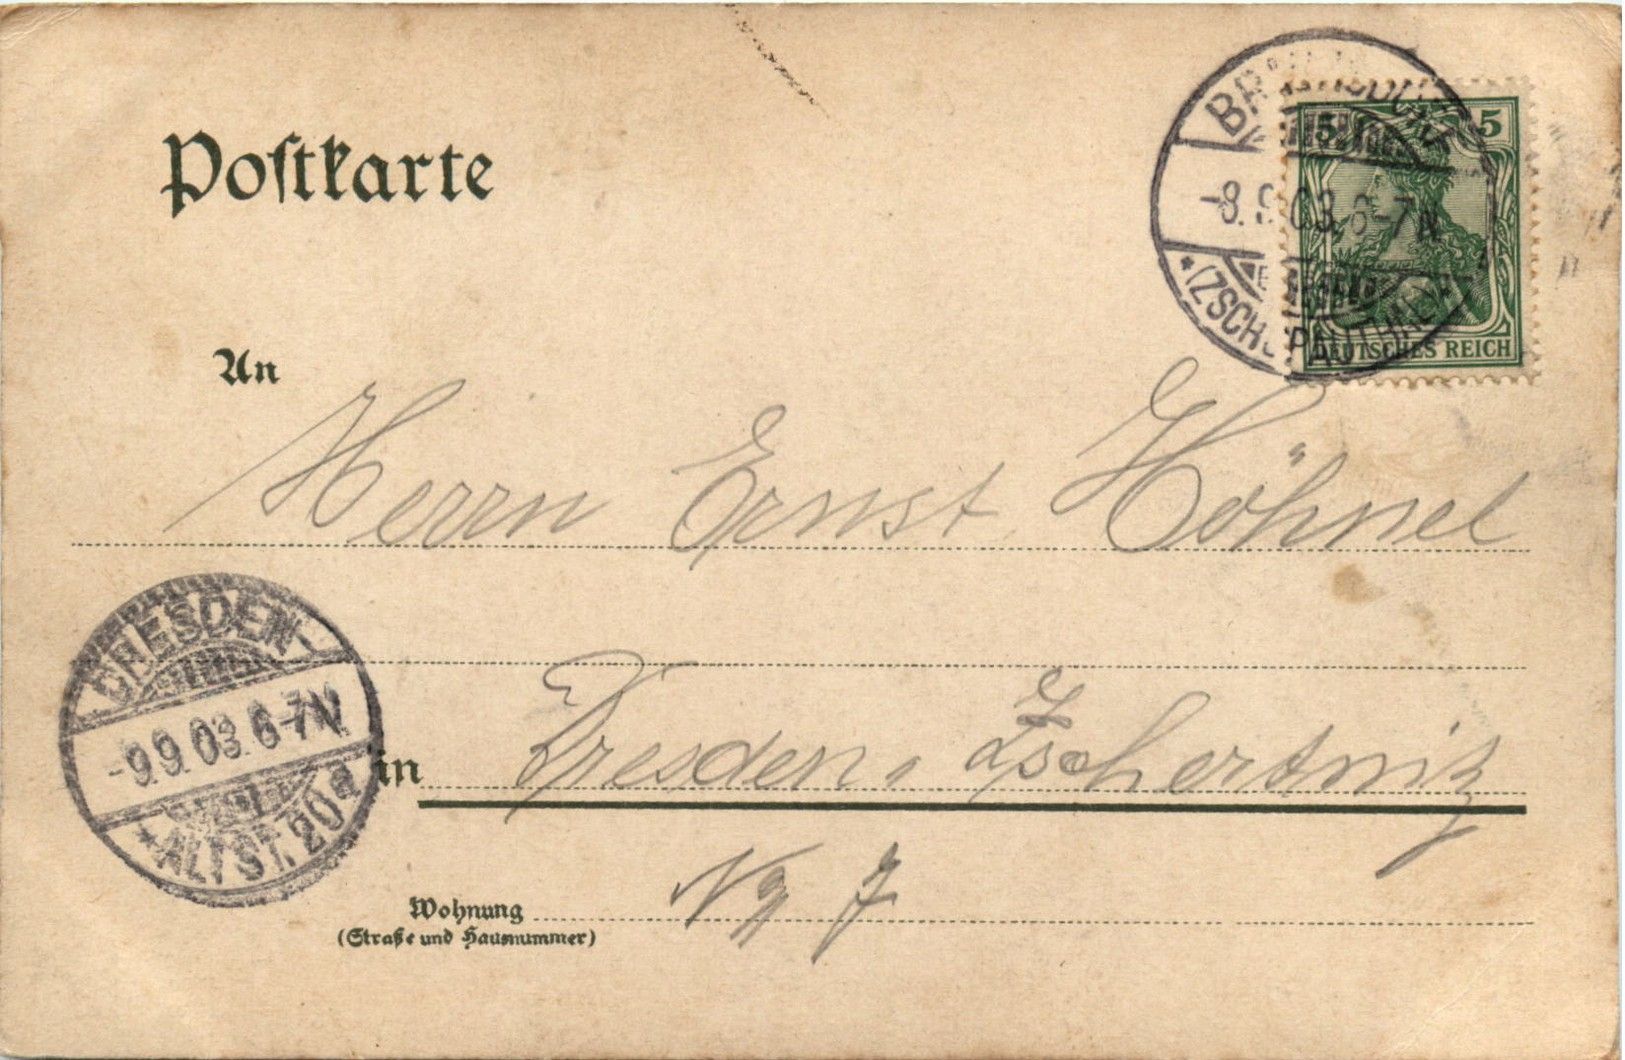 Postkarte
5 5
-8. 03. 6-7N
*(ZSCHOPAUTHAL)
DEUTSCHES REICH
An
Herrn Ernst Höhnel
DRESDEN-
-9.9.03. 6-7N.
*ALTST. 20a
in Dresden, Zschertnitz
Wohnung No 7
(Straße und Hausnummer)